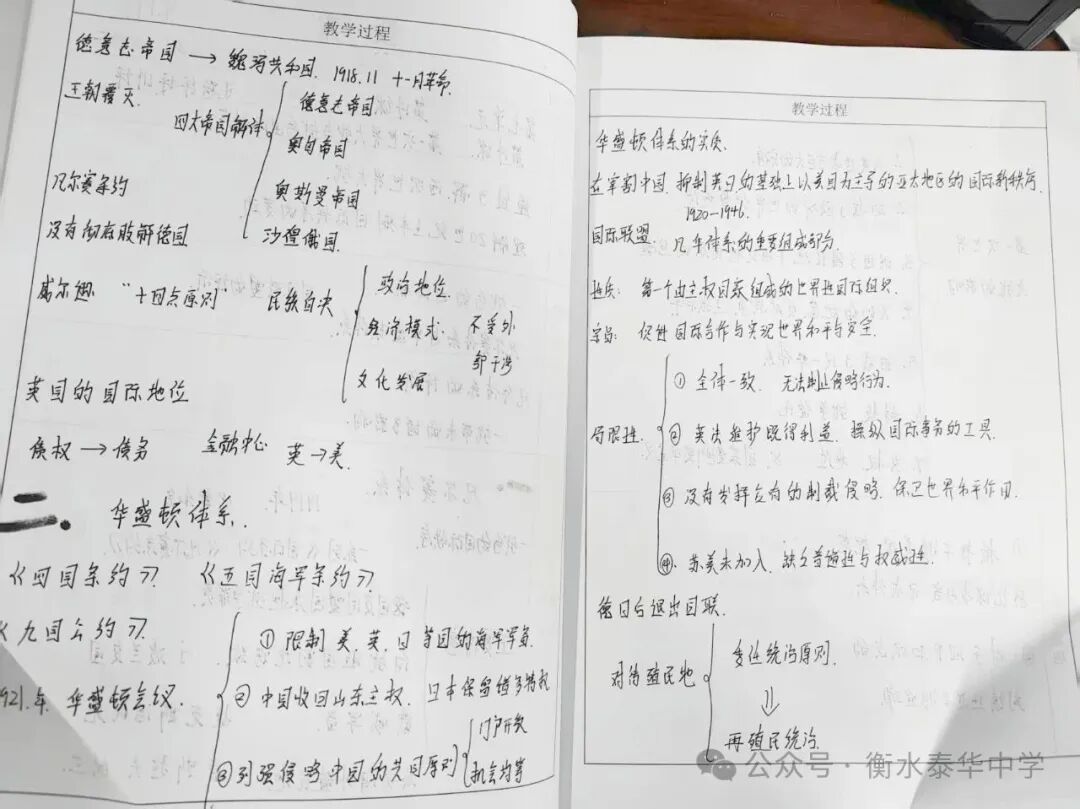 教学过程
德意志帝国 → 魏玛共和国. 1918.11 十一月革命.
王朝覆灭.
四大帝国解体
德意志帝国
奥匈帝国
奥斯曼帝国
沙俄俄国.
凡尔赛条约
没有彻底肢解德国
威尔逊 "十四点原则" 民族自决
政治地位.
经济模式. 不受外部干涉
文化发展
英国的国际地位
债权 → 债务 金融中心 英→美.
二. 华盛顿体系.
《四国条约》. 《五国海军条约》.
《九国公约》.
921.年. 华盛顿会议
① 限制美.英.日等国的海军军备.
② 中国收回山东主权. 日本保留诸多特权
③ 列强侵略中国的共同原则
门户开放
机会均等
教学过程
华盛顿体系的实质.
在宰割中国. 抑制英日的基础上以美国为主导的亚太地区的国际新秩序.
1920—1946.
国际联盟: 凡华体系的重要组成部分.
性质: 第一个由主权国家组成的世界性国际组织.
宗旨: 促进国际合作与实现世界和平与安全.
局限性.
① 全体一致. 无法制止侵略行为.
② 英法维护既得利益. 操纵国际事务的工具.
③ 没有发挥应有的制裁侵略. 保卫世界和平作用.
④. 苏美未加入. 缺乏普遍性与权威性.
德日后退出国联.
对待殖民地
委任统治原则.
⇓
再殖民统治.
公众号·衡水泰华中学